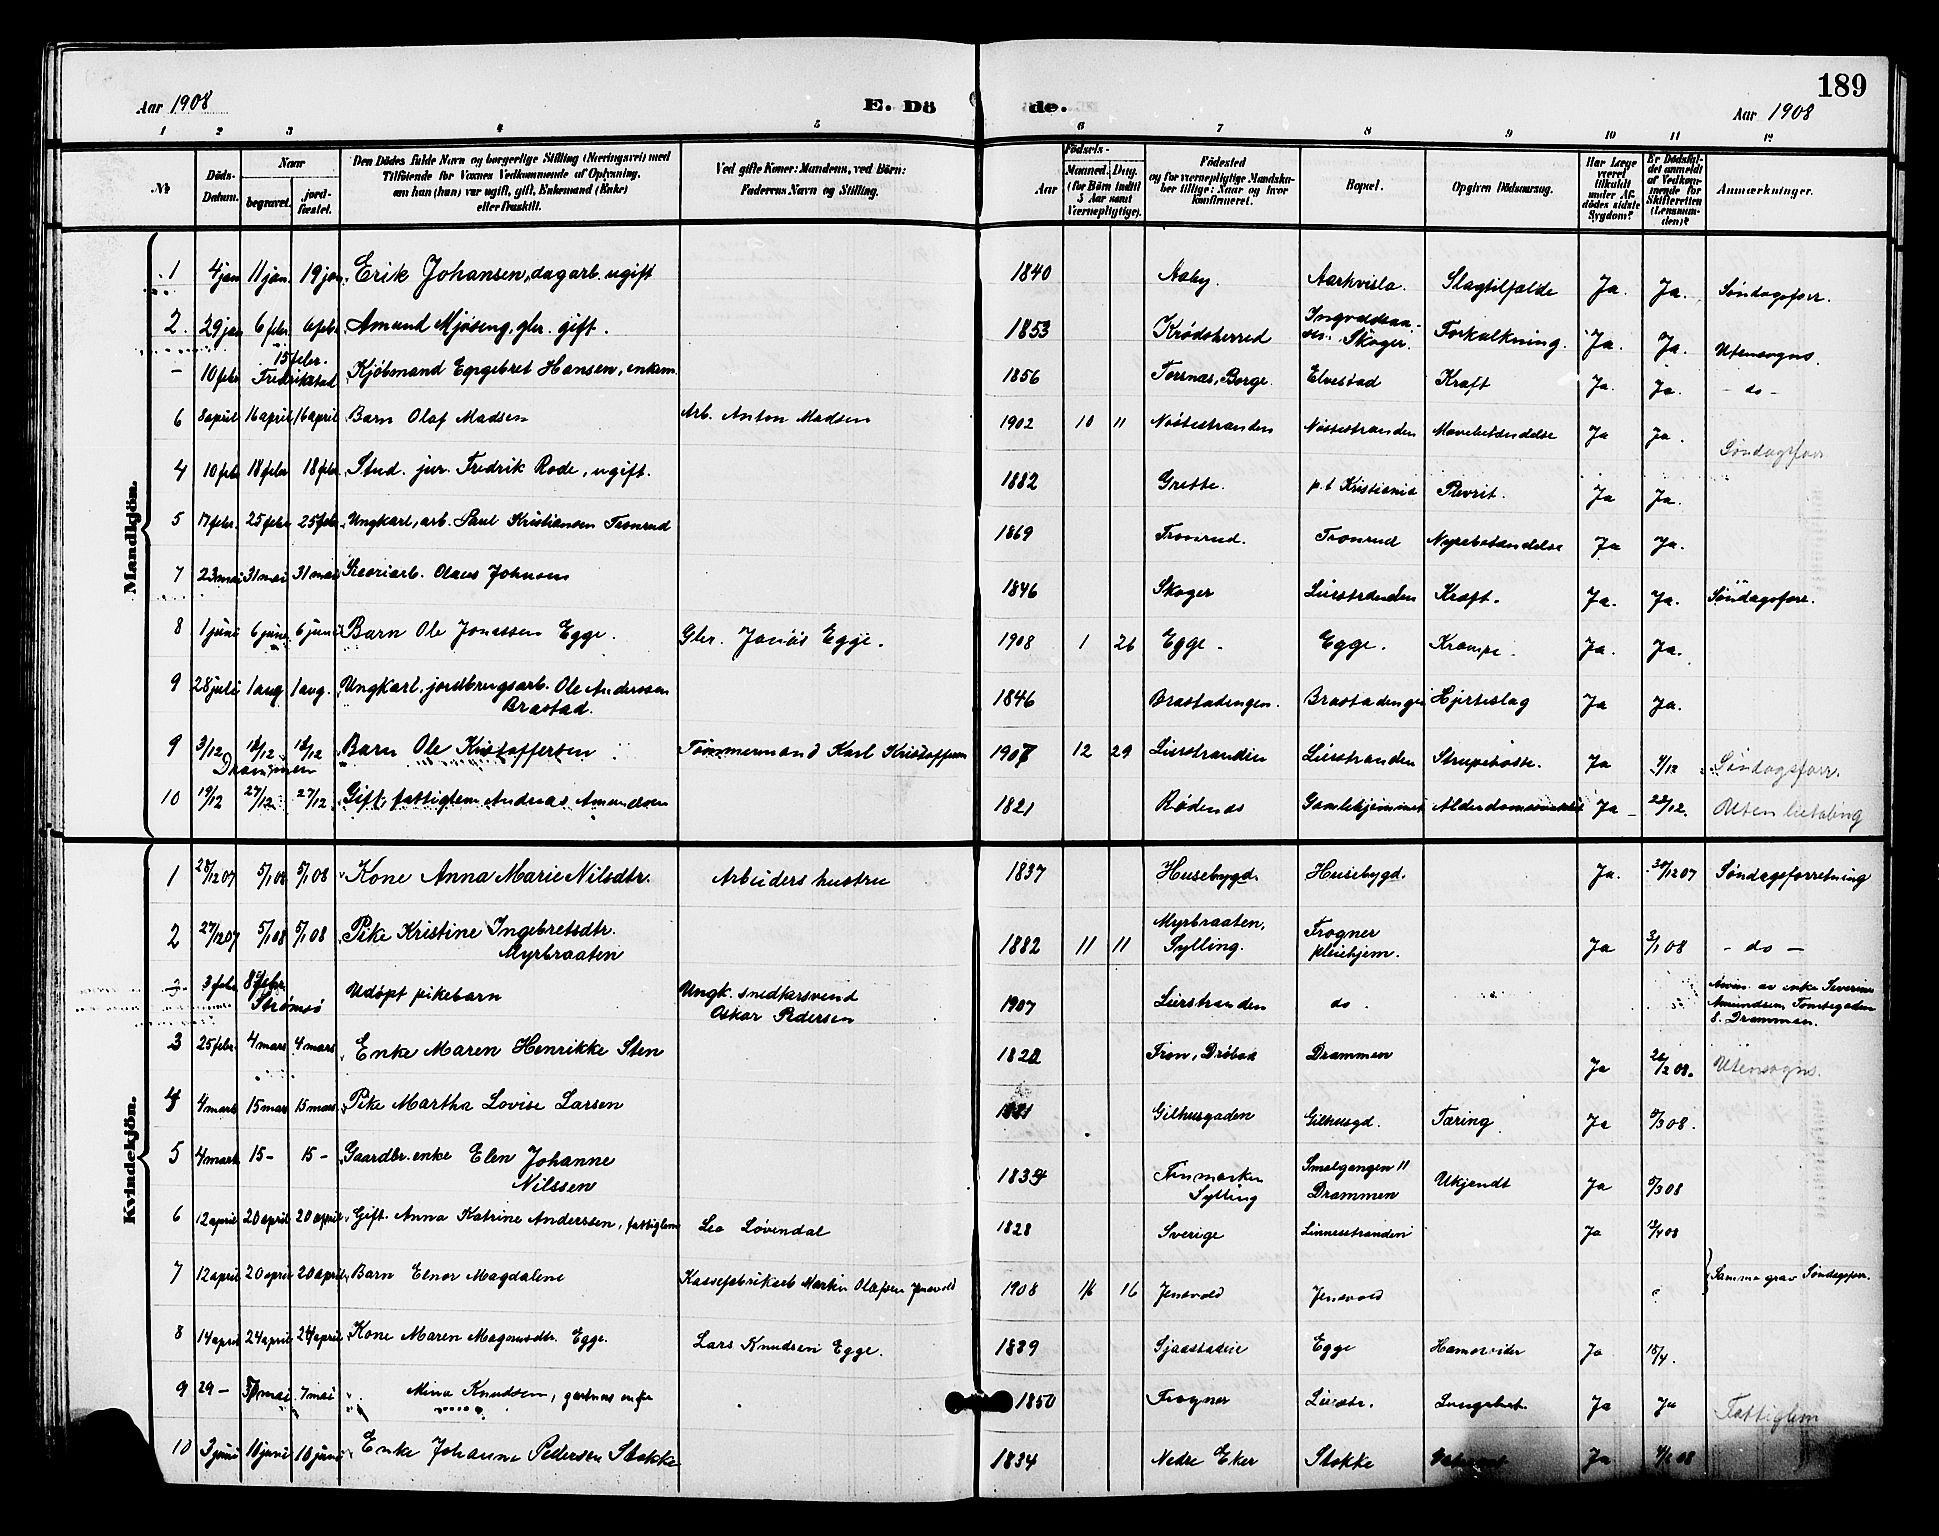 189
Aar 1908
E. Dö de.
Aar 1908
1 2 3 4 5 6 7 8 9 10 11 12
№
Döds-Datum.
Naar
begravet.
jord-fæstet.
Den Dödes fulde Navn og borgerlige Stilling (Næringsvei) med
Tilföiende for Voxnes Vedkommende af Oplysning,
om han (hun) var ugift, gift, Enkemand (Enke)
eller fraskilt.
Ved gifte Koner: Mandens, ved Börn:
Faderens Navn og Stilling.
Födsels-
Aar
Maaned. Dag.
(for Börn indtil
5 Aar samt
Værnepligtige).
Födested
og for værnepligtige Mandska-
ber tillige: Naar og hvor
konfirmeret.
Bopæl.
Opgiven Dödsaarsag.
Har Læge
været
tilkaldt
under Af-
dödes sidste
Sygdom?
Er Dödsfal-
det anmeldt
af Vedkom-
mende for
Skifteretten
(Lensman-
den)?
Anmærkninger.
Mandkjön.
1 4 jan 11 jan. 19 jan. Erik Johansen, dagarb. ugift 1840 Aaby. Aarkvisla. Slagtilfælde Ja. Ja. Søndagsforr.
2. 29 jan 6 febr. 6 febr. Amund Mjøseng, gbr. gift. 1853 Krødsherred Skoger. Forkalkning. Ja. Ja. Utensogns.
- 10 febr. 15 febr. Fredrikstad Kjøbmand Engebret Hansen, enkem. 1856 Torsnæs, Borge. Elvestad Kræft Ja. Ja. - do -
6 8 april 16 april 16 april Barn Olaf Madsen Arb. Anton Madsen 1902 10 11 Nøstestranden Nøstestranden Mavebetændelse Ja Ja. Søndagsforr
4 10 febr 18 febr 18 febr. Stud. jur. Fredrik Rode, ugift. 1882 Grette. p.t Kristiania Plevrit. Ja Ja.
5 17 febr. 25 febr. 25 febr. Ungkarl, arb. Paul Kristiansen Tronrud 1869 Tronrud. Tronrud Nyrebetændelse Ja Ja.
7 23 mai 31 mai 31 mai Olaus Johnsen 1846 Skoger Lierstranden Kræft. Ja. Ja. Søndagsforr.
8 1 juni 6 juni 6 juni Barn Ole Jonassen Egge. Gbr. Jonas Egge. 1908 1 26 Egge. Egge. Krampe. Ja. Ja.
9 28 juli 1 aug 1 avg. Ungkarl, jordbrugsarb. Ole Anderssen
Brastad. 1846 Brastadengen. Brastadengen Hjerteslag Ja Ja.
9 3/12 12/12 12/12 Drammen Barn Ole Kristoffersen Tømmermand Karl Kristoffersen 1907 12 29 Lierstranden Lierstranden Strupehoste. Ja 4/12 Søndagsforr.
10 19/12 27/12 27/12 Gift, fattiglem Andreas Amundsen 1821 Rødenes Gamlehjemmet Ja 22/12. Uten betaling
Kvindekjön.
1 28/12 07 5/1 08 5/1 08 Kone Anna Marie Nilsdtr. Arbeiders hustru 1837 Husebygd. Husebygd. Ja. 30/12 07 Søndagsforretning
2 27/12 07 5/1 08 5/1 08 Pike Kristine Ingebretsdtr.
Myrbraaten 1882 11 11 Myrbraaten,
Sylling. Frogner
pleiehjem. Ja 3/1 08 - do -
3 3 febr 8 febr. Strømsø Udøpt pikebarn Ungk. snedkersvend
Oskar Pedersen 1907 Lierstranden do. enke Severine
Amundsen, Tomtegaden
8. Drammen.
3 25 febr. 4 mars 4 mars Enke Maren Henrikke Sten 1822 Tron, Drøbak Drammen Ja 26/2 08. Utensogns.
4 4 mars 15 mars 15 mars Pike Martha Lovise Larsen 1881 Gilhusgaden Gilhusgd. Tæring Ja 6/3 08.
5 4 mars 15 - 15 - Gaardbr. enke Elen Johanne
Nilssen 1834 Finmarken
Sylling Smalgangen 11
Drammen Ukjendt Ja 6/3 08
6 12 april 20 april 20 april Gift. Anna Katrine Anderssen, fattiglem Leo Løvendal 1828 Sverige Linnesstranden Ja 13/4 08
7 12 april 20 april 20 april Barn Elnor Magdalene Kassefabrikarb. Martin Olafsen Jensvold 1908 16 Jensvold Jensvold Samme grav Søndagsforr.
8 14 april 24 april 24 april Kone Maren Magnusdtr. Egge. Lars Knudsen Egge. 1839 Gjaastadeie Egge Ja 15/4.
9 29 - 7 mai 7 mai " Mina Knudsen, gartners enke 1850 Frogner Lierstr. Ja Ja Fattiglem
10 3 juni 10 juni 10 juni Enke Johanne Pedersen Stokke 1834 Nedre Eker Stokke Ja 4/6 08